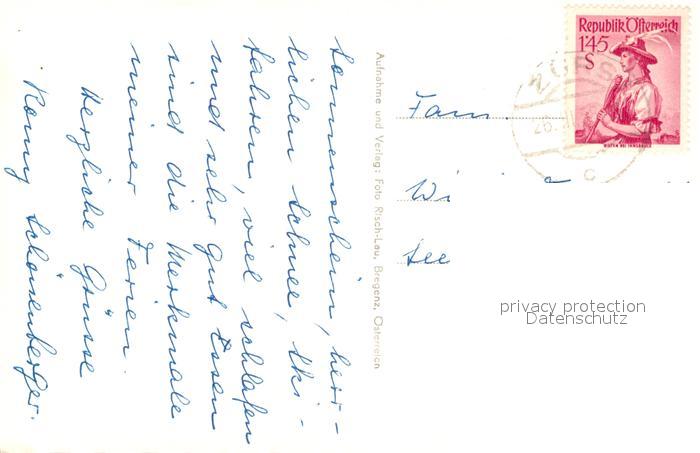 Sonnenschein, herr-
lichen Schnee, Ski-
fahren, viel schlafen
und sehr gut Essen
sind die Merkmale
meiner Ferien.
Herzliche Grüsse
Romy Schönenberger.
Aufnahme und Verlag: Foto Risch-Lau, Bregenz, Österreich
Republik Österreich
1'45
S
WILTEN BEI INNSBRUCK
ZÜRS
26.
c
Fam.
Wi
See
privacy protection
Datenschutz